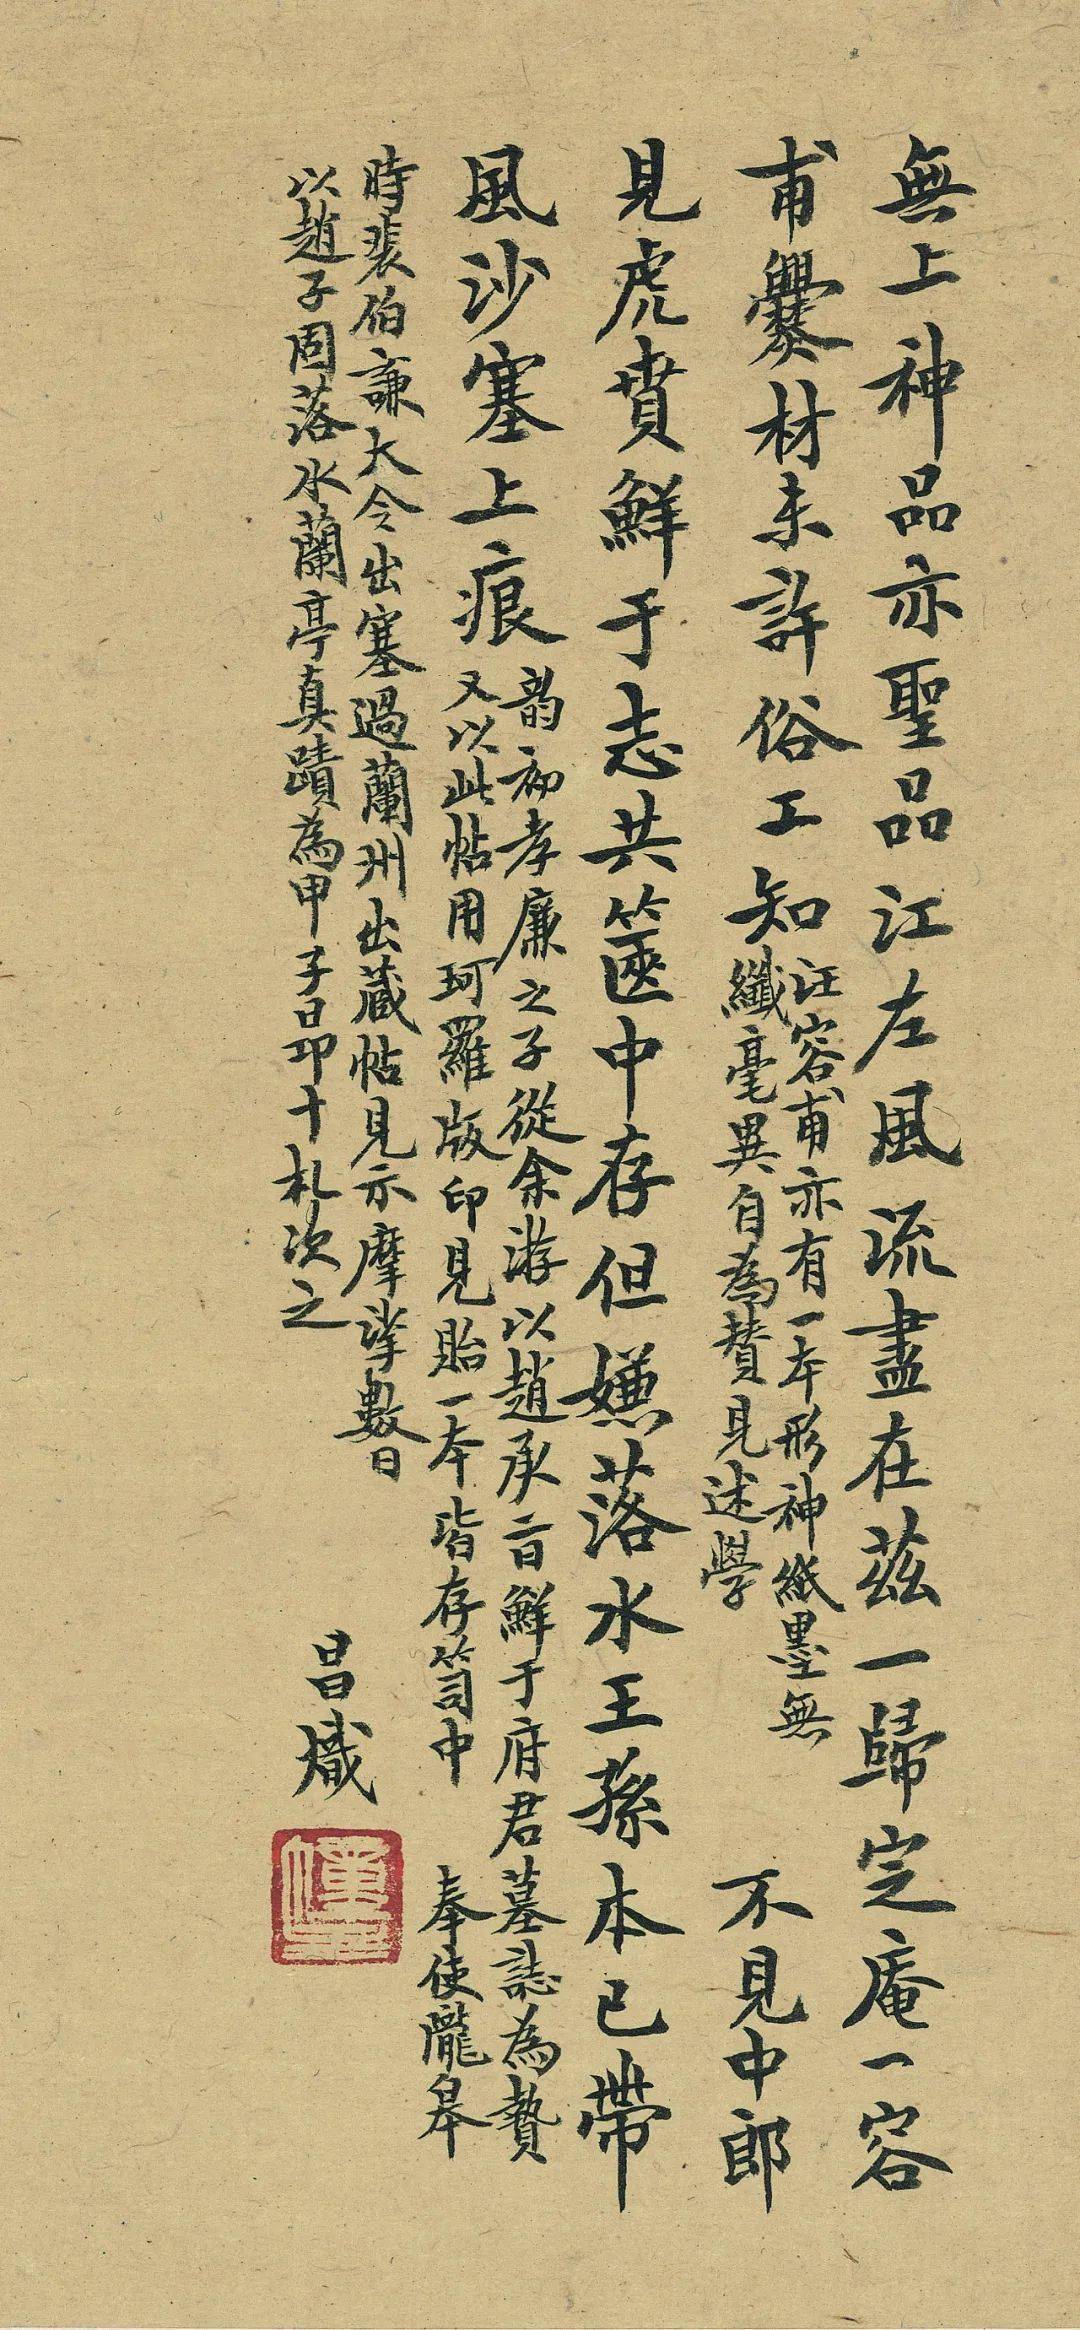 無上神品亦聖品江左風流盡在茲一歸定庵一容
甫爨材未許俗工知
汪容甫亦有一本形神紙墨無
纖毫異自為贊見述學
不見中郎
見虎賁鮮于志共篋中存但嫌落水王孫本已帶
風沙塞上痕
韵初孝廉之子從余游以趙承旨鮮于府君墓誌為贄
又以此帖用珂羅版印見貽一本皆存笥中 奉使隴皋
時裴伯謙大令出塞過蘭州出藏帖見示摩挲數日
以趙子固落水蘭亭真蹟為甲子昂十札次之
昌熾